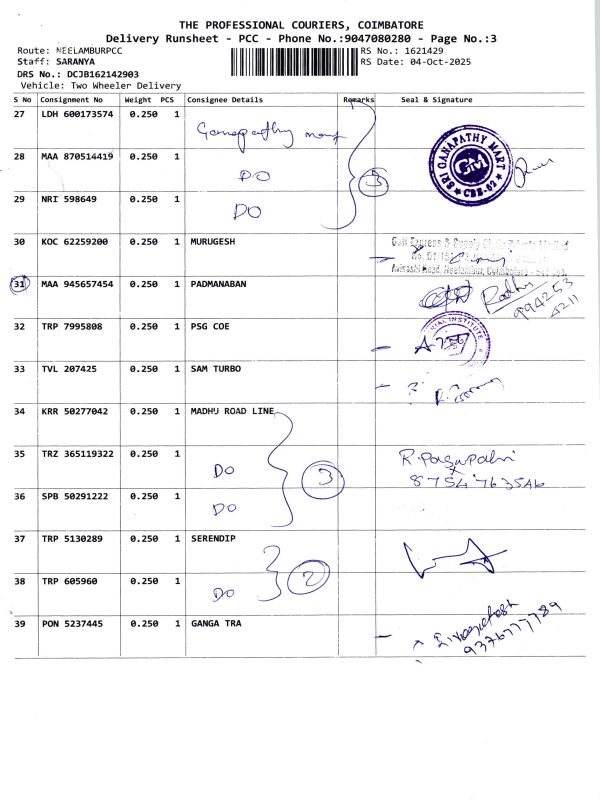 THE PROFESSIONAL COURIERS, COIMBATORE
Delivery Runsheet - PCC - Phone No.:9047080280 - Page No.:3
Route: NEELAMBURPCC
RS No.: 1621429
Staff: SARANYA
RS Date: 04-Oct-2025
DRS No.: DCJB162142903
Vehicle: Two Wheeler Delivery
S No Consignment No Weight PCS Consignee Details Remarks Seal & Signature
27 LDH 600173574 0.250 1 Ganapathy mart
SRI GANAPATHY MART
GM
CBE-62
28 MAA 870514419 0.250 1 DO
3
29 NRI 598649 0.250 1 DO
30 KOC 62259200 0.250 1 MURUGESH
31 MAA 945657454 0.250 1 PADMANABAN
Radhu
994253
4211
32 TRP 7995808 0.250 1 PSG COE
33 TVL 207425 0.250 1 SAM TURBO
34 KRR 50277042 0.250 1 MADHU ROAD LINE
35 TRZ 365119322 0.250 1 DO
3
8754763546
36 SPB 50291222 0.250 1 DO
37 TRP 5130289 0.250 1 SERENDIP
2
38 TRP 605960 0.250 1 DO
39 PON 5237445 0.250 1 GANGA TRA
9376777789